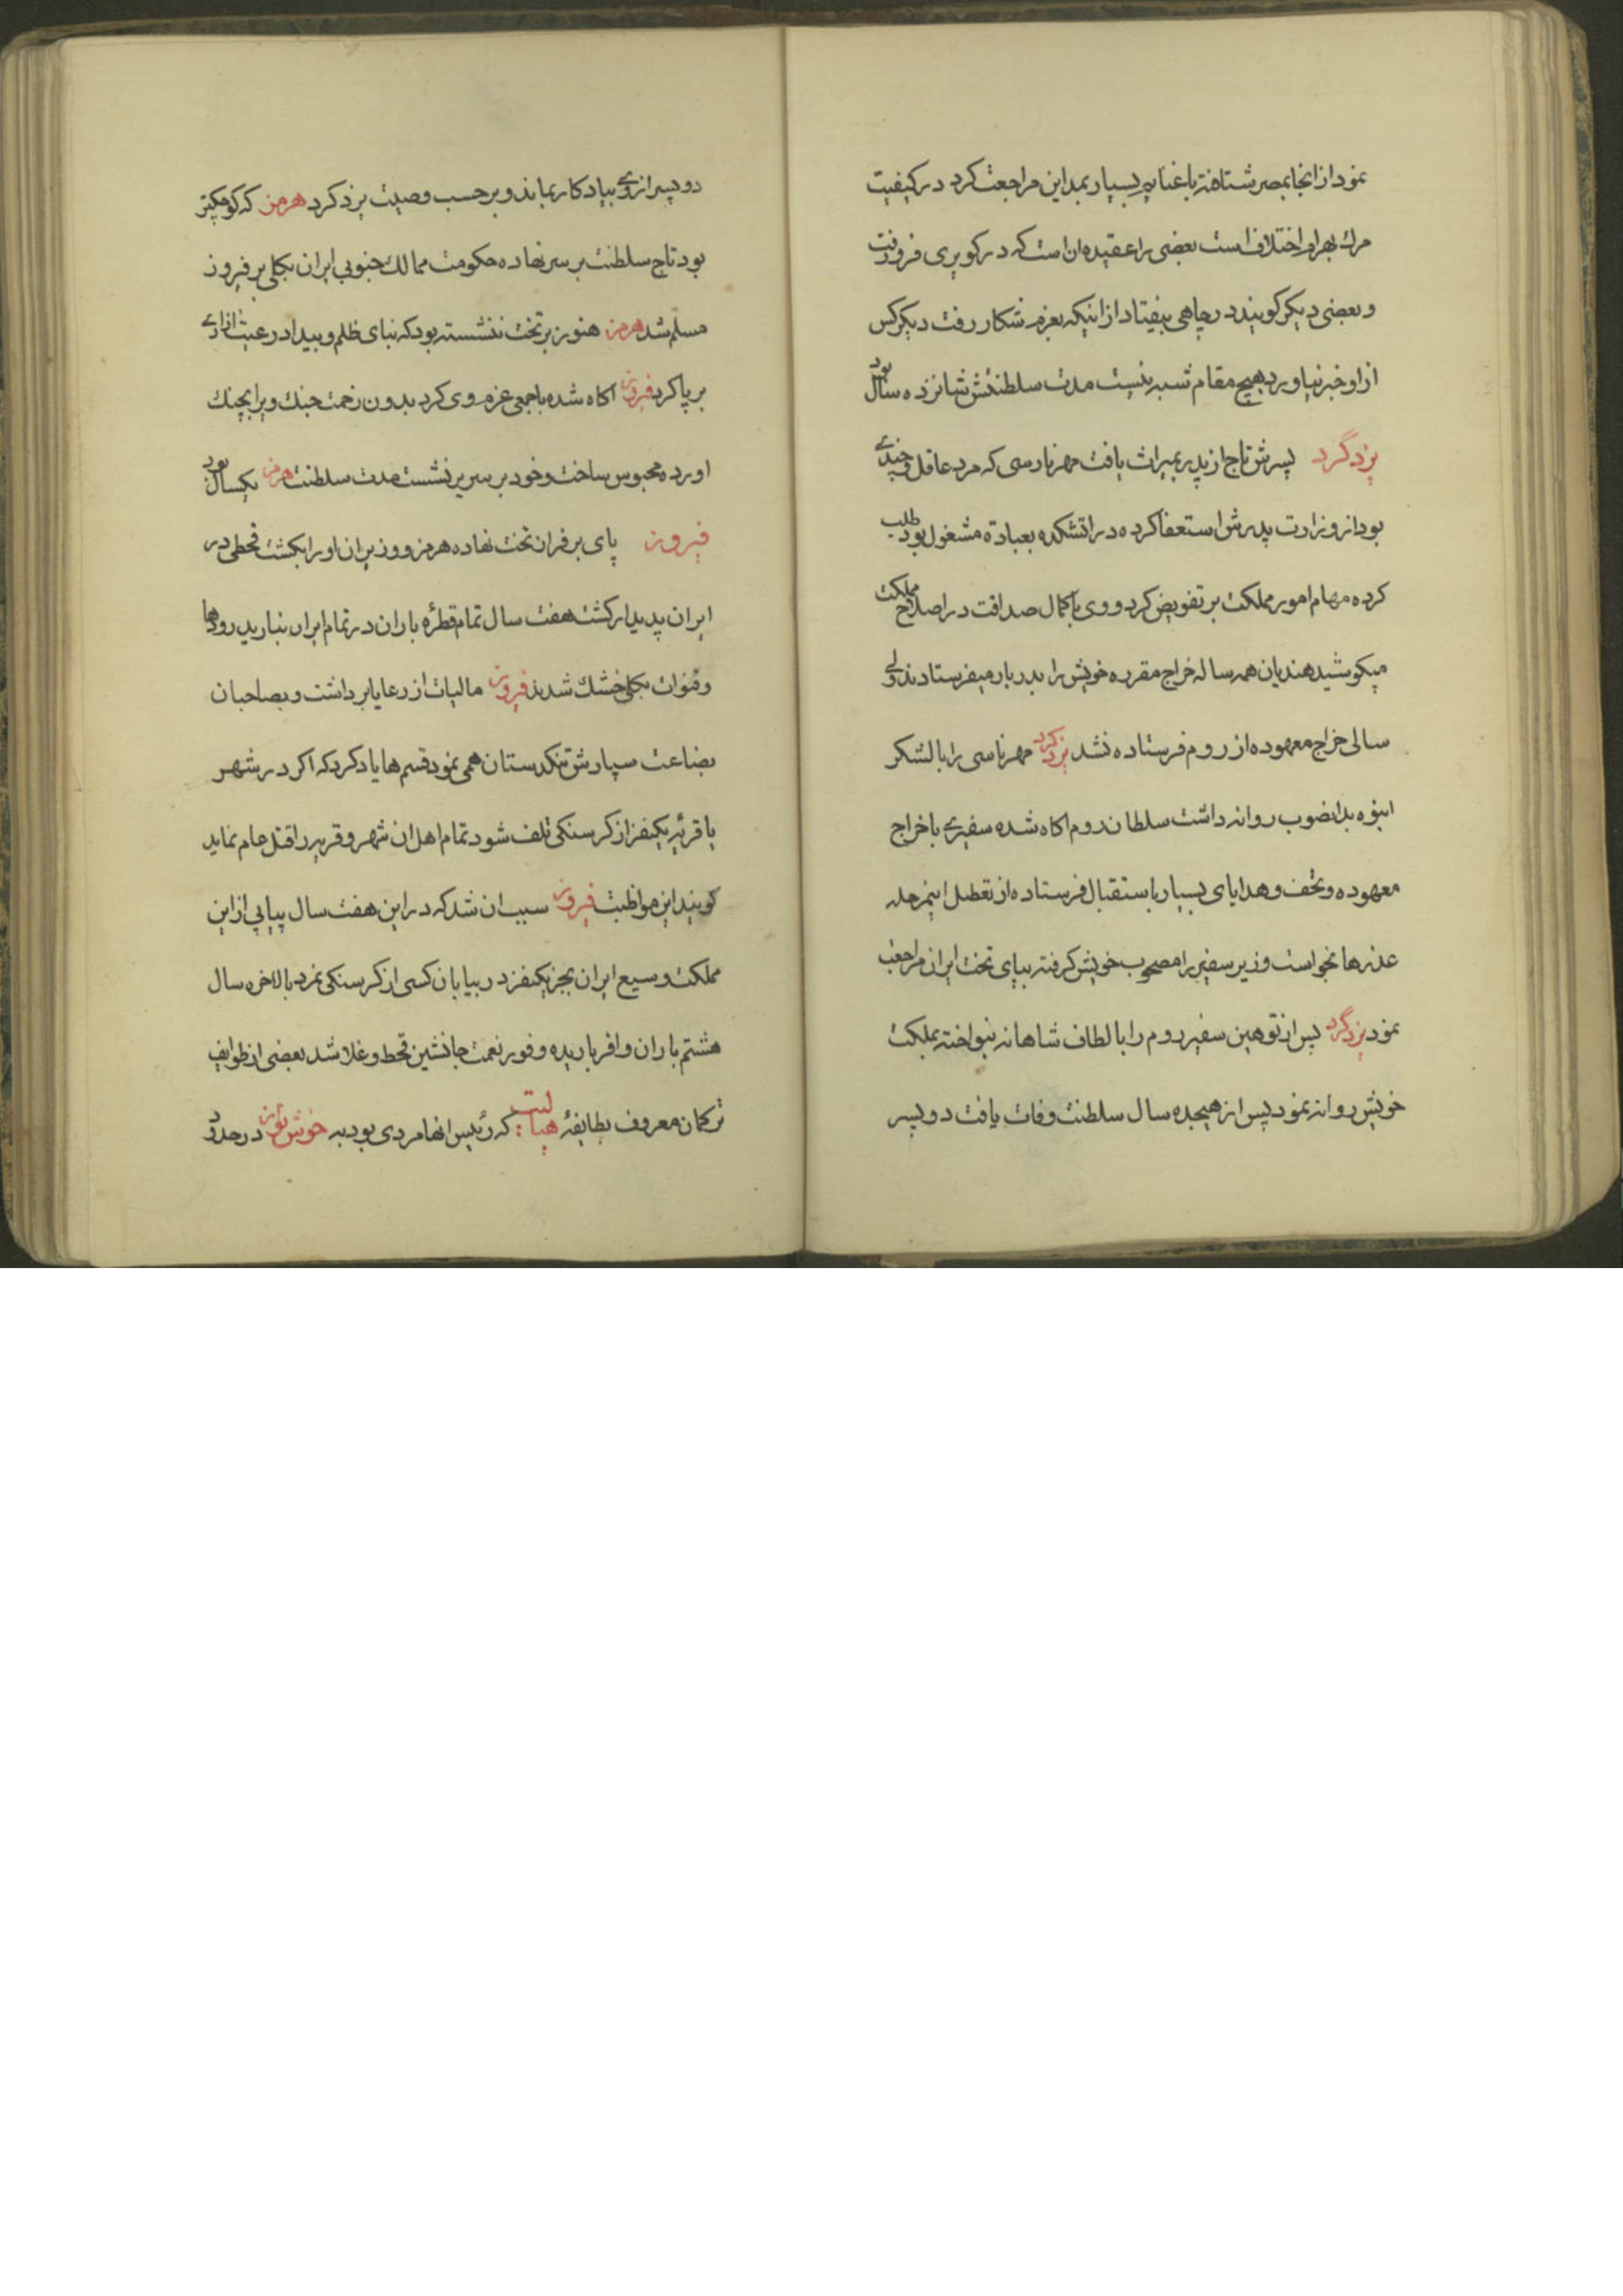 نمود از انجا بمصر شتافته با غنایم بسیار بمداین مراجعت کرد در کیفیت
مرك بهرام اختلاف است بعضی را عقیده ان است که در کویری فرو رفت
و بعضی دیکر کویند در چاهی بیفتاد از اینکه بعزم شکار رفت دیکر کس
از او خبر نیاورد هیچ مقام شبه نیست مدت سلطنتش شانزده سال بود
یزدگرد پسرش تاج از پدر بمیراث یافت مهر نارسی که مرد عاقل و
بود از وزارت پدرش استعفا کرده در اتشکده بعبادة مشغول بود طلب
کرده مهام امور مملکت بر تفویض کرد و وی با کمال صداقت در اصلاح مملکت
میکوشید هندیان همه ساله خراج مقرره خویش را بدربار میفرستادند ولی
سالی خراج معهوده از روم فرستاده نشد یزدکرد مهر ناسی را با لشکر
انبوه بدانصوب روانه داشت سلطان روم اکاه شده سفیری با خراج
معهوده و تحف و هدایای بسیار باستقبال فرستاده از تعطیل اینمرحله
عذرها بخواست وزیر سفیر را مصحوب خویش کرفته بپای تخت ایران مراجعت
نمود یزدگرد پس از توهین سفیر روم را بالطاف شاهانه بنواخته بملکت
خویش روانه نمود پس از هیجده سال سلطنت وفات یافت دو پسر
دو پسر از وی بیادکار بماند و بر حسب وصیت یزدکرد هرمز که کوچکتر
بود تاج سلطنت بر سر نهاده حکومت ممالك جنوبی ایران بکلی بر فیروز
مسلم شد هرمز هنوز بر تخت ننشسته بود که بنای ظلم و بیداد رعیت ازاری
برپا کرد فیروز اکاه شده با جمعی عزم وی کرد بدون زحمت جنك ویرا بچنك
اورده محبوس ساخت و خود بر سریر نشست مدت سلطنت هرمز یکسال بود
فیروز پای بر فراز تخت نهاده هرمز و وزیران او را بکشت قحطی در
ایران پدیدار کشت هفت سال تمام قطرۀ باران در تمام ایران نبارید رودها
و قنوات بکلی خشك شدند فیروز مالیات از رعایا برداشت و بصاحبان
بضاعت سپارش تنکدستان همی نمود قسم ها یاد کرد که اکر در شهر
یا قریۀ یکنفر از کرسنکی تلف شود تمام اهل ان شهر و قریه را قتل عام نماید
کویند این مواظبت فیروز سبب ان شد که در این هفت سال پیاپی از این
مملکت وسیع ایران بجز یکنفر در بیابان کسی از کرسنکی نمرد بالاخره سال
هشتم باران وافر باریده وفور نعمت جانشین قحط و غلا شد بعضی از طوایف
ترکمان معروف بطایفۀ هیاتلیت که رئیس انها مردی بود به خوش نواز در حدود